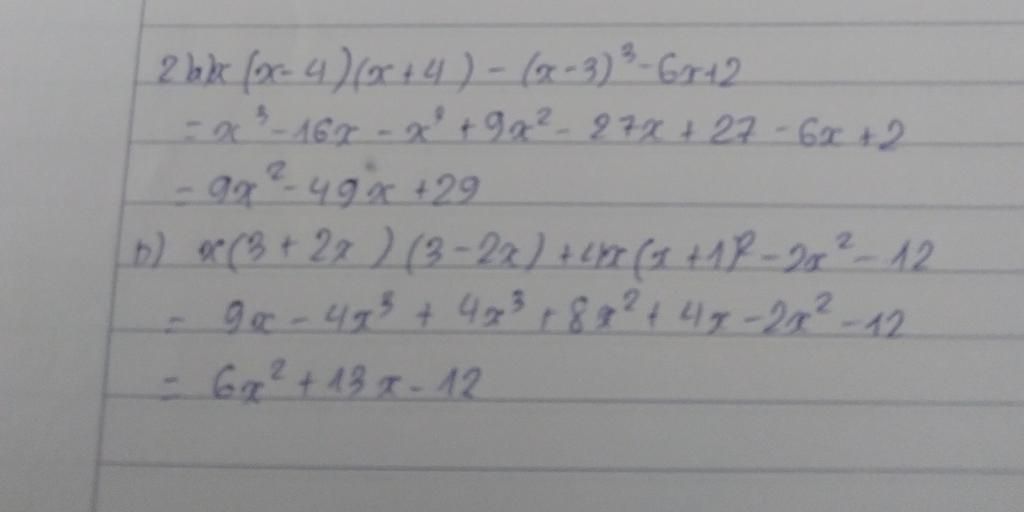 2b)x(x-4)(x+4)-(x-3)³-6x+2
=x³-16x-x³+9x²-27x+27-6x+2
=9x²-49x+29
n) x(3+2x)(3-2x)+4x(x+1)²-2x²-12
= 9x-4x³+4x³+8x²+4x-2x²-12
= 6x²+13x-12